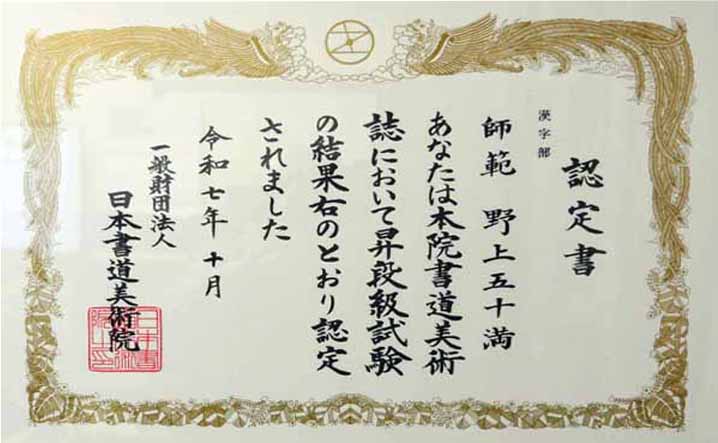 認定書
漢字部
師範 野上五十満
あなたは本院書道美術
誌において昇段級試験
の結果右のとおり認定
されました
令和七年 十月
一般財団法人
日本書道美術院